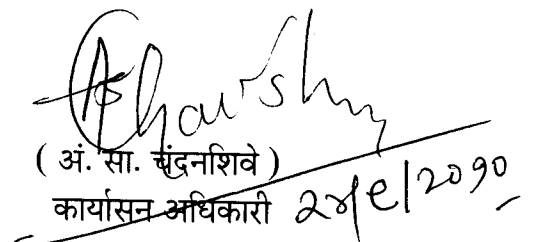 ( अं. सा. चंद्रनशिवे )
कार्यासन अधिकारी २४/९/२०१०